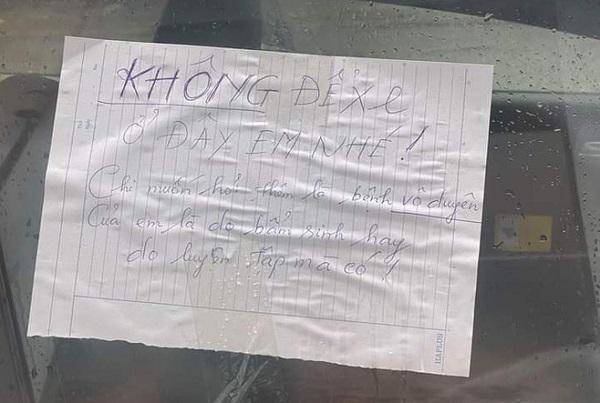 KHÔNG ĐỂ Xe
Ở ĐÂY EM NHÉ!
Chỉ muốn hỏi thêm là bệnh vô duyên
Của em là do bẩm sinh hay
do luyện tập mà có!
HAPLUS